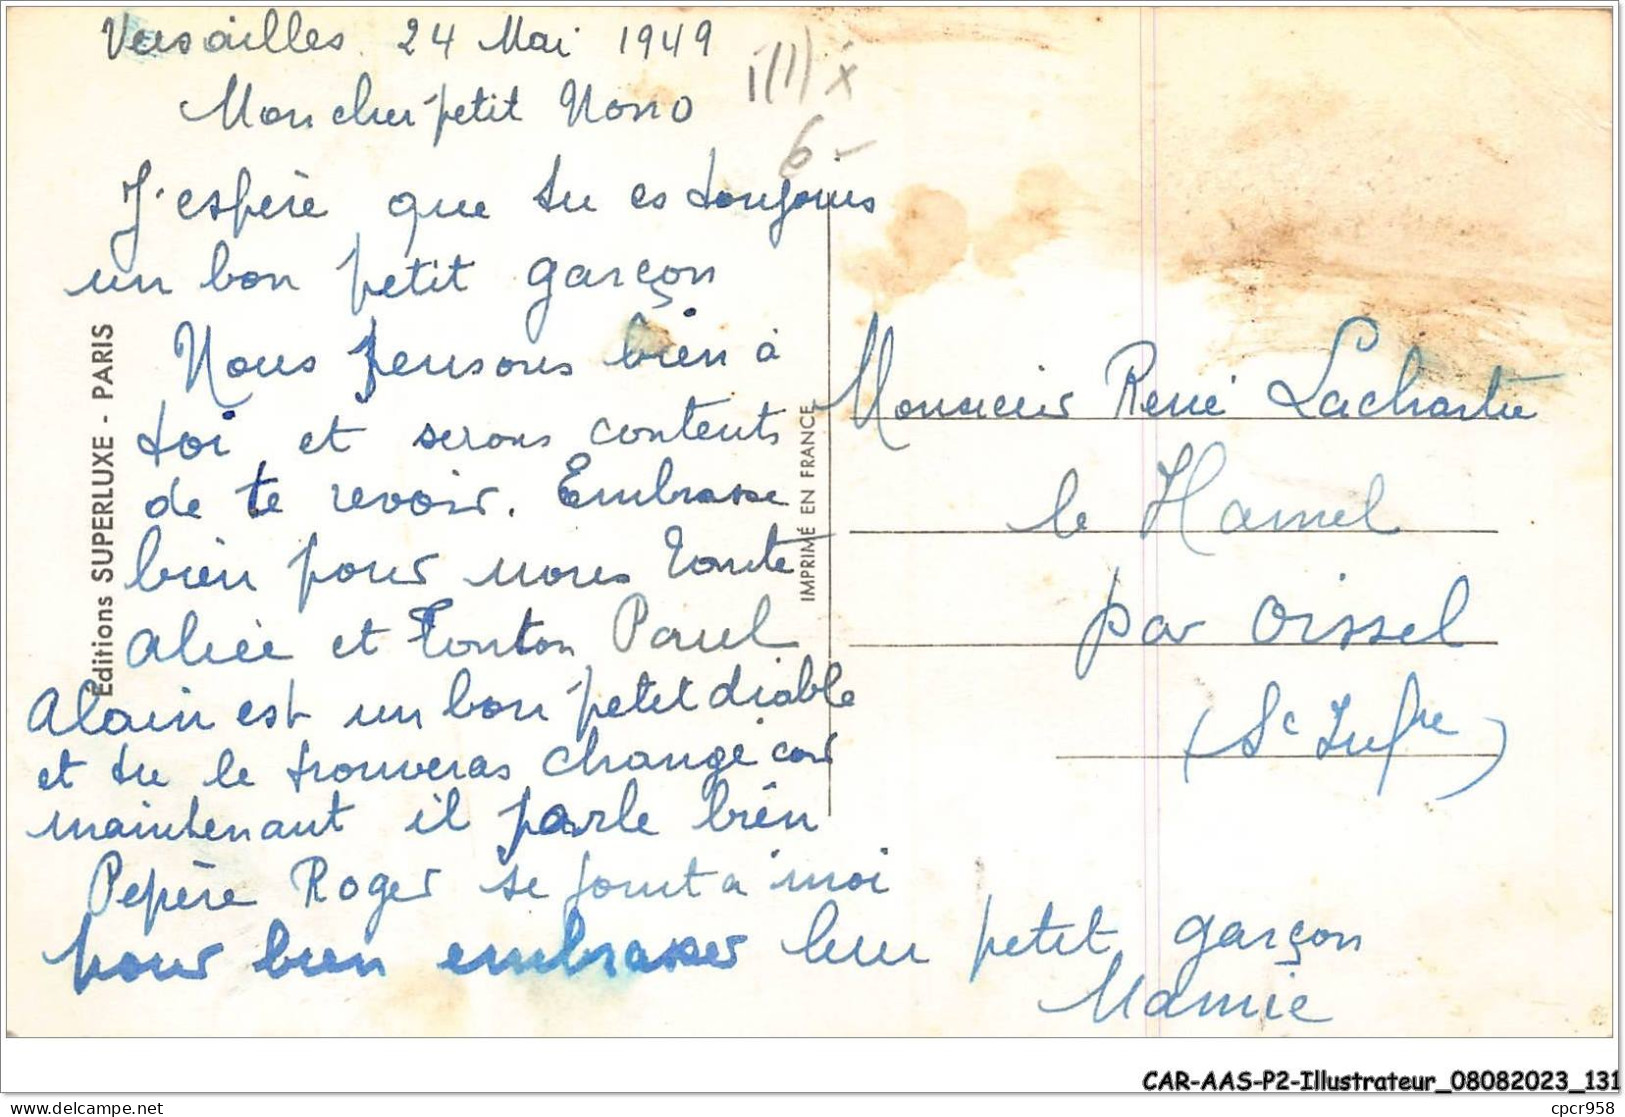 Versailles 24 Mai 1949
Mon cher petit Nono
J'espère que tu es toujours
un bon petit garçon
Nous pensons bien à
toi et serons contents
de te revoir. Embrasse
bien pour nous Tante
Alice et Tonton Paul
Alain est un bon petit diable
et tu le trouveras changé car
maintenant il parle bien
Pepère Roger se joint a moi
pour bien embrasser leur petit garçon
Mamie
6-
Editions SUPERLUXE - PARIS
IMPRIMÉ EN FRANCE
Monsieur René
le Hamel
par Oissel
(Se Infre)
CAR-AAS-P2-Illustrateur_08082023_131
delcampe.net
cpcr958